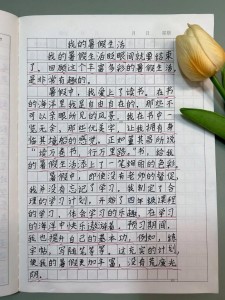 我的暑假生活
我的暑假生活眨眼间就要结束
了,回顾这个丰富多彩的暑假生活,
是非常有趣的。
暑假中,我爱上了读书。在书
的海洋里我是自由自在的,那些不
可以亲眼所见的风景,我在书中一
览无余。那些优美字,让我拥有身
临其境般的感受。正如董其昌所说
“读万卷书,行万里路。”书,给我
的暑假生活添上了一笔绚丽的色彩。
暑假中,即使没有老师的督促,
我并没有忘记了学习。我制定了合
理的学习计划,开始了四年级课程
的学习,体会学习的乐趣,在学习
的海洋中快乐遨游着。预习期间,
我也提升自己的基本功,例如,练
字帖,写随笔等等。这充实的计划,
使我的暑假更加丰富,没有荒废光
阴。